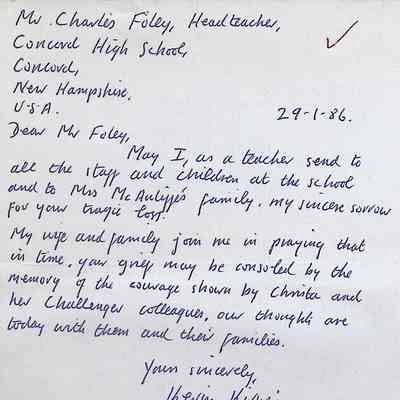 Mr. Charles Foley, Headteacher,
Concord High School,
Concord,
New Hampshire.
U.S.A.
29-1-86.
Dear Mr Foley,
May I, as a teacher send to
all the staff and children at the school
and to Mrs McAuliffe's family, my sincere sorrow
for your tragic loss.
My wife and family join me in praying that
in time, your grief may be consoled by the
memory of the courage shown by Christa and
her Challenger colleagues, our thoughts are
today with them and their families.
Yours sincerely,